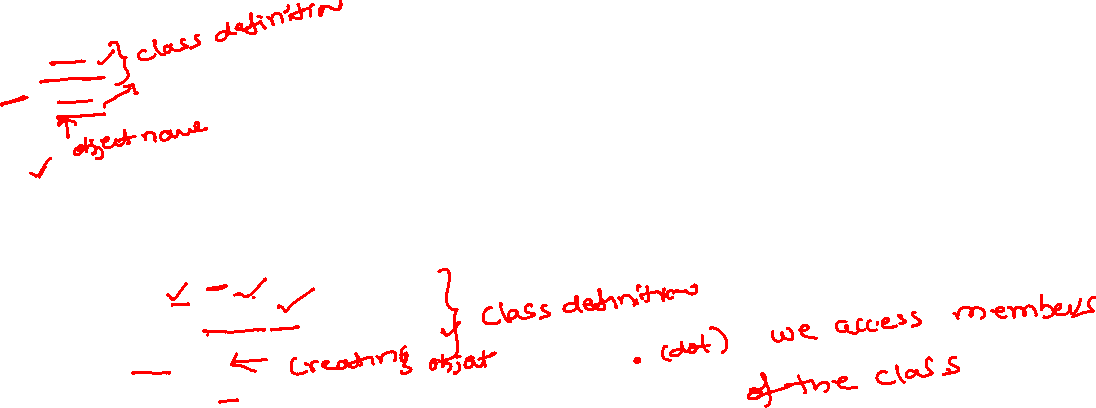 class definition
object name
Class definition
Creating object
. (dot) we access members
of the class